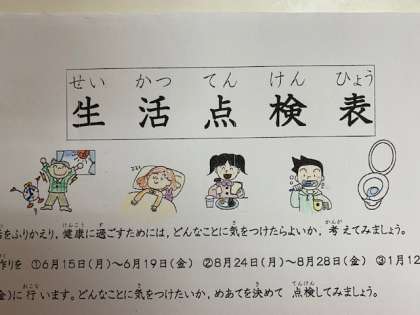 せい かつ てん けん ひょう
生活点検表
zzz
をふりかえり,健康に過ごすためには,どんなことに気をつけたらよいか,考えてみましょう。
作りを ①6月15日(月)~6月19日(金) ②8月24日(月)~8月28日(金) ③1月12
金)に行います。どんなことに気をつけたいか,めあてを決めて 点検してみましょう。